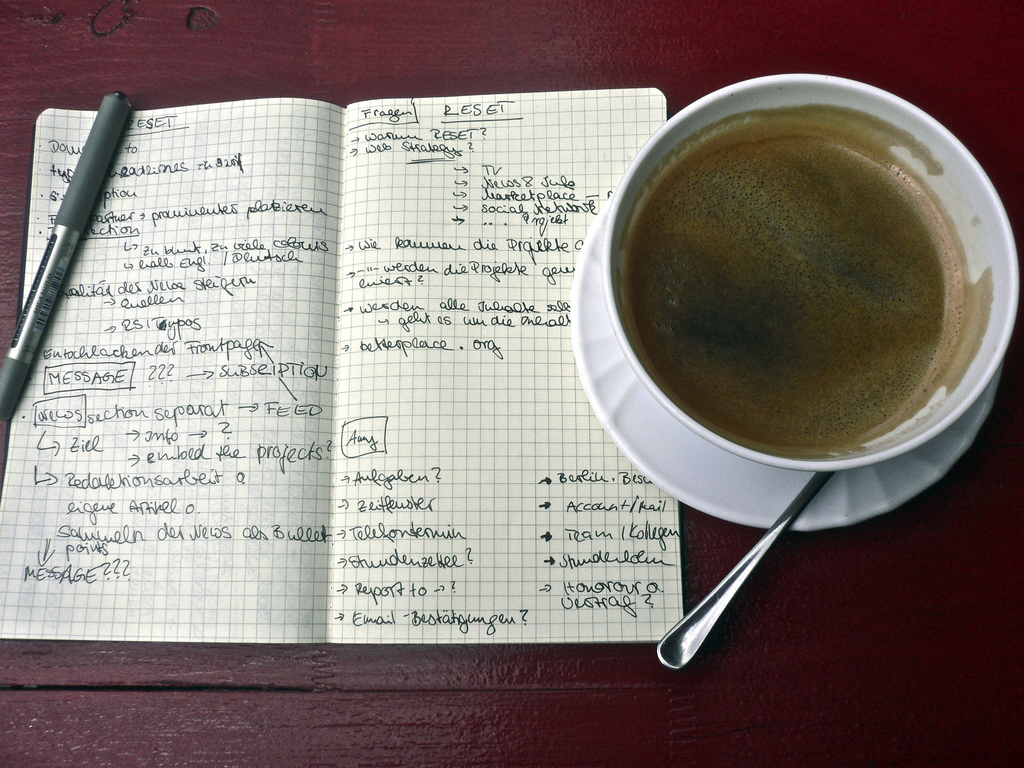 RESET
to
prominenter platzieren
section
↳ zu bunt, zu viele colours
↳ halb Engl. / Deutsch
der News steigern
→ quellen
→ RS / Typos
Entschlacken der Frontpage
MESSAGE ??? → SUBSCRIPTION
News section separat → FEED
↳ Ziel → Info → ?
→ embed the projects?
↳ Redaktionsarbeit o.
eigene Artikel o.
Sammeln der News als Bullet
points
MESSAGE???
Fragen RESET
→ Warum RESET?
→ Web Strategy?
→ TV
→ News & Info
→ Marketplace
→ social Network
→ .... Projekt
→ wie kommen die Projekte
→ -"- werden die Projekte
→ werden alle Inhalte
→ geht es um die Inhalt
→ betterplace.org
→ Aufgaben?
→ Zeitfenster
→ Telefontermin
→ Stundenzettel?
→ Report to → ?
→ Email-Bestätigungen?
→ Berlin. Besu
→ Account/Mail
→ Team / Kollegen
→ Stundenlohn
→ Honorar o.
Vertrag?